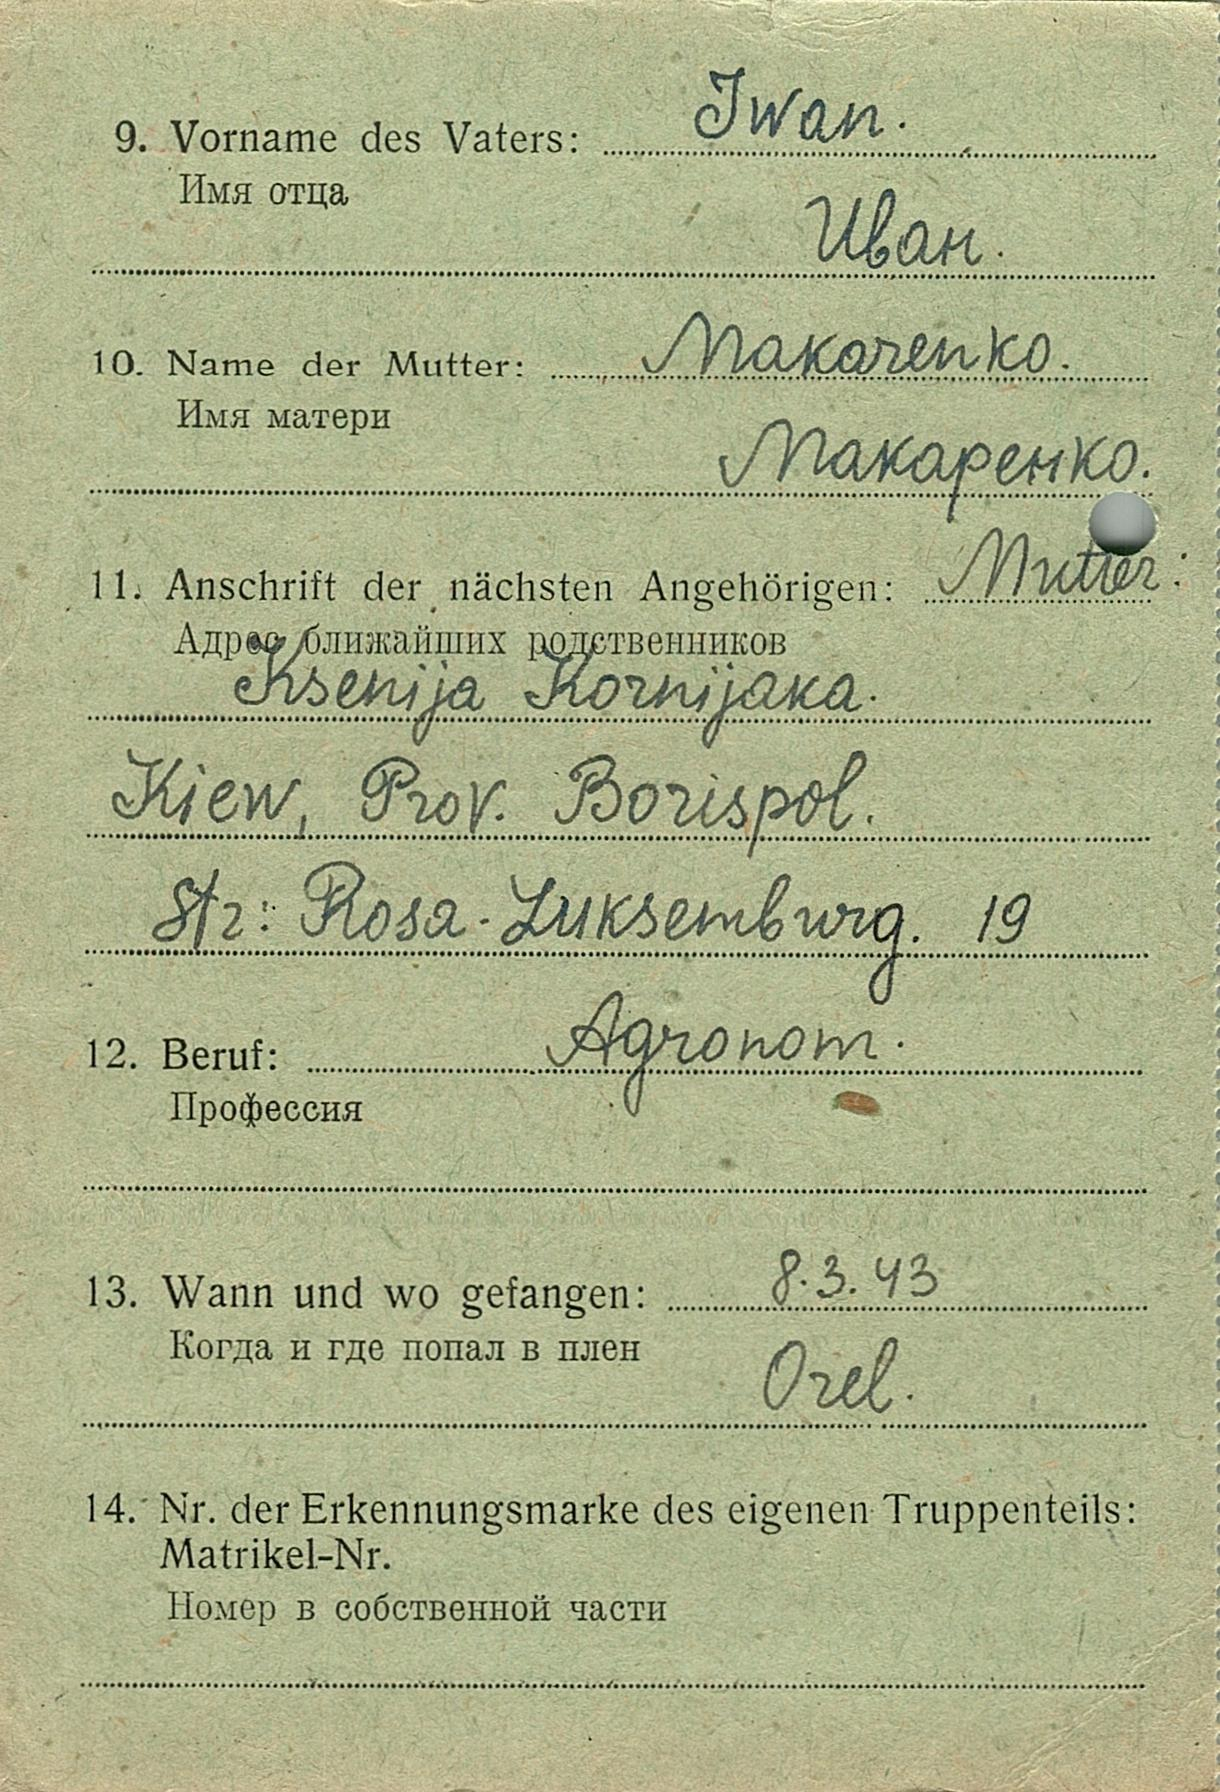 9. Vorname des Vaters: Iwan.
Имя отца
Иван.
10. Name der Mutter: Makarenko.
Имя матери
Макаренко.
11. Anschrift der nächsten Angehörigen: Mutter:
Адрес ближайших родственников
Ksenija Kornijaka.
Kiew, Prov. Borispol.
Str: Rosa-Luksemburg. 19
12. Beruf: Agronom.
Профессия
13. Wann und wo gefangen: 8.3.43
Когда и где попал в плен
Orel.
14. Nr. der Erkennungsmarke des eigenen Truppenteils:
Matrikel-Nr.
Номер в собственной части